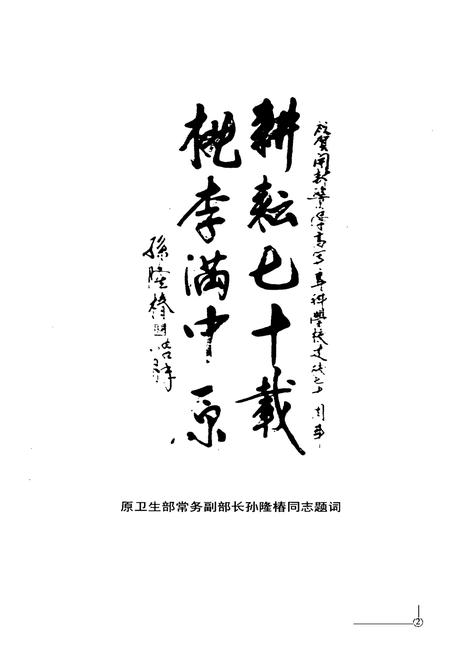 祝贺開封醫學高等專科學校建校七十周年
耕耘七十載
桃李满中原
孫隆椿
原卫生部常务副部长孙隆椿同志题词
2